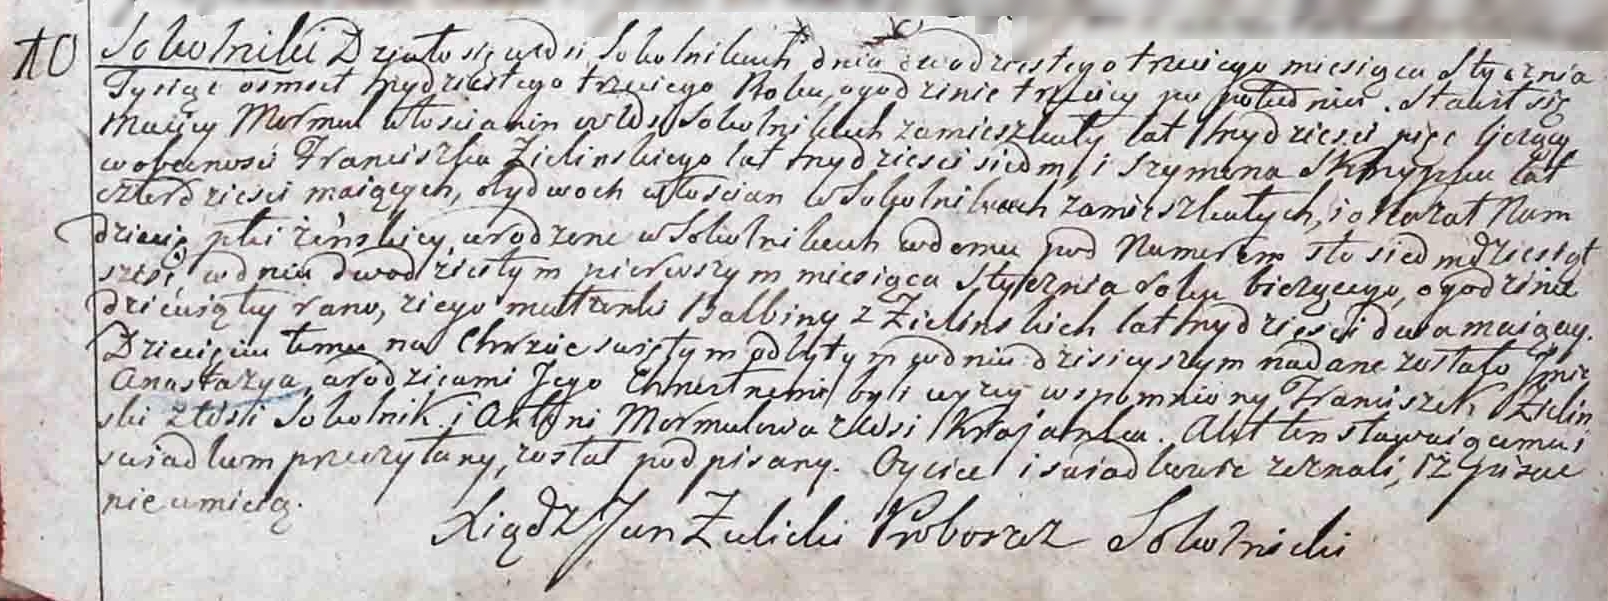 10 Sokolniki Działo się wWsi Sokolnikach dnia dwodziestego trzeciego miesiąca Stycznia
Tysiąc osmset trzydziestego trzeciego Roku, ogodzinie trzeciey po południu. Stawił się
Maciey Mormul włoscianin wWsi Sokolnikach zamieszkały lat trzydziesci pięc liczący
wobecnosci Franciszka Zielinskiego lat trzydziesci siedm, i Szymona Skrzypka lat
czterdziesci maiących, obydwoch włoscian w Sokolnikach zamieszkałych, i okazał Nam
dziecię płci żeńskiey, urodzone wSokolnikach wdomu pod Numerem sto siedmdziesiąt
szesć, wdniu dwodziestym pierwszym miesiąca Stycznia roku bieżącego, ogodzinie
dziewiątey rano, ziego małżonki Balbiny z Zielinskich lat trzydziesci dwa maiącey.
Dziecięciu temu na Chrzcie swiętym odbytym wdniu dzisieyszym nadane zostało Jmie
Anastazya, arodzicami Jego Chrzestnemi byli wyzey wspomniony Franciszek Zielin
ski zWsi Sokolnik i Antoni Mormulowa zWsi Krajanka. Akt ten stawaiącemu i
swiadkom przeczytany, został podpisany. Oyciec i swiadkowie zeznali, iż pisac
nie umieią.
Xiądz Jan Zulicki Proboszcz Sokolnicki